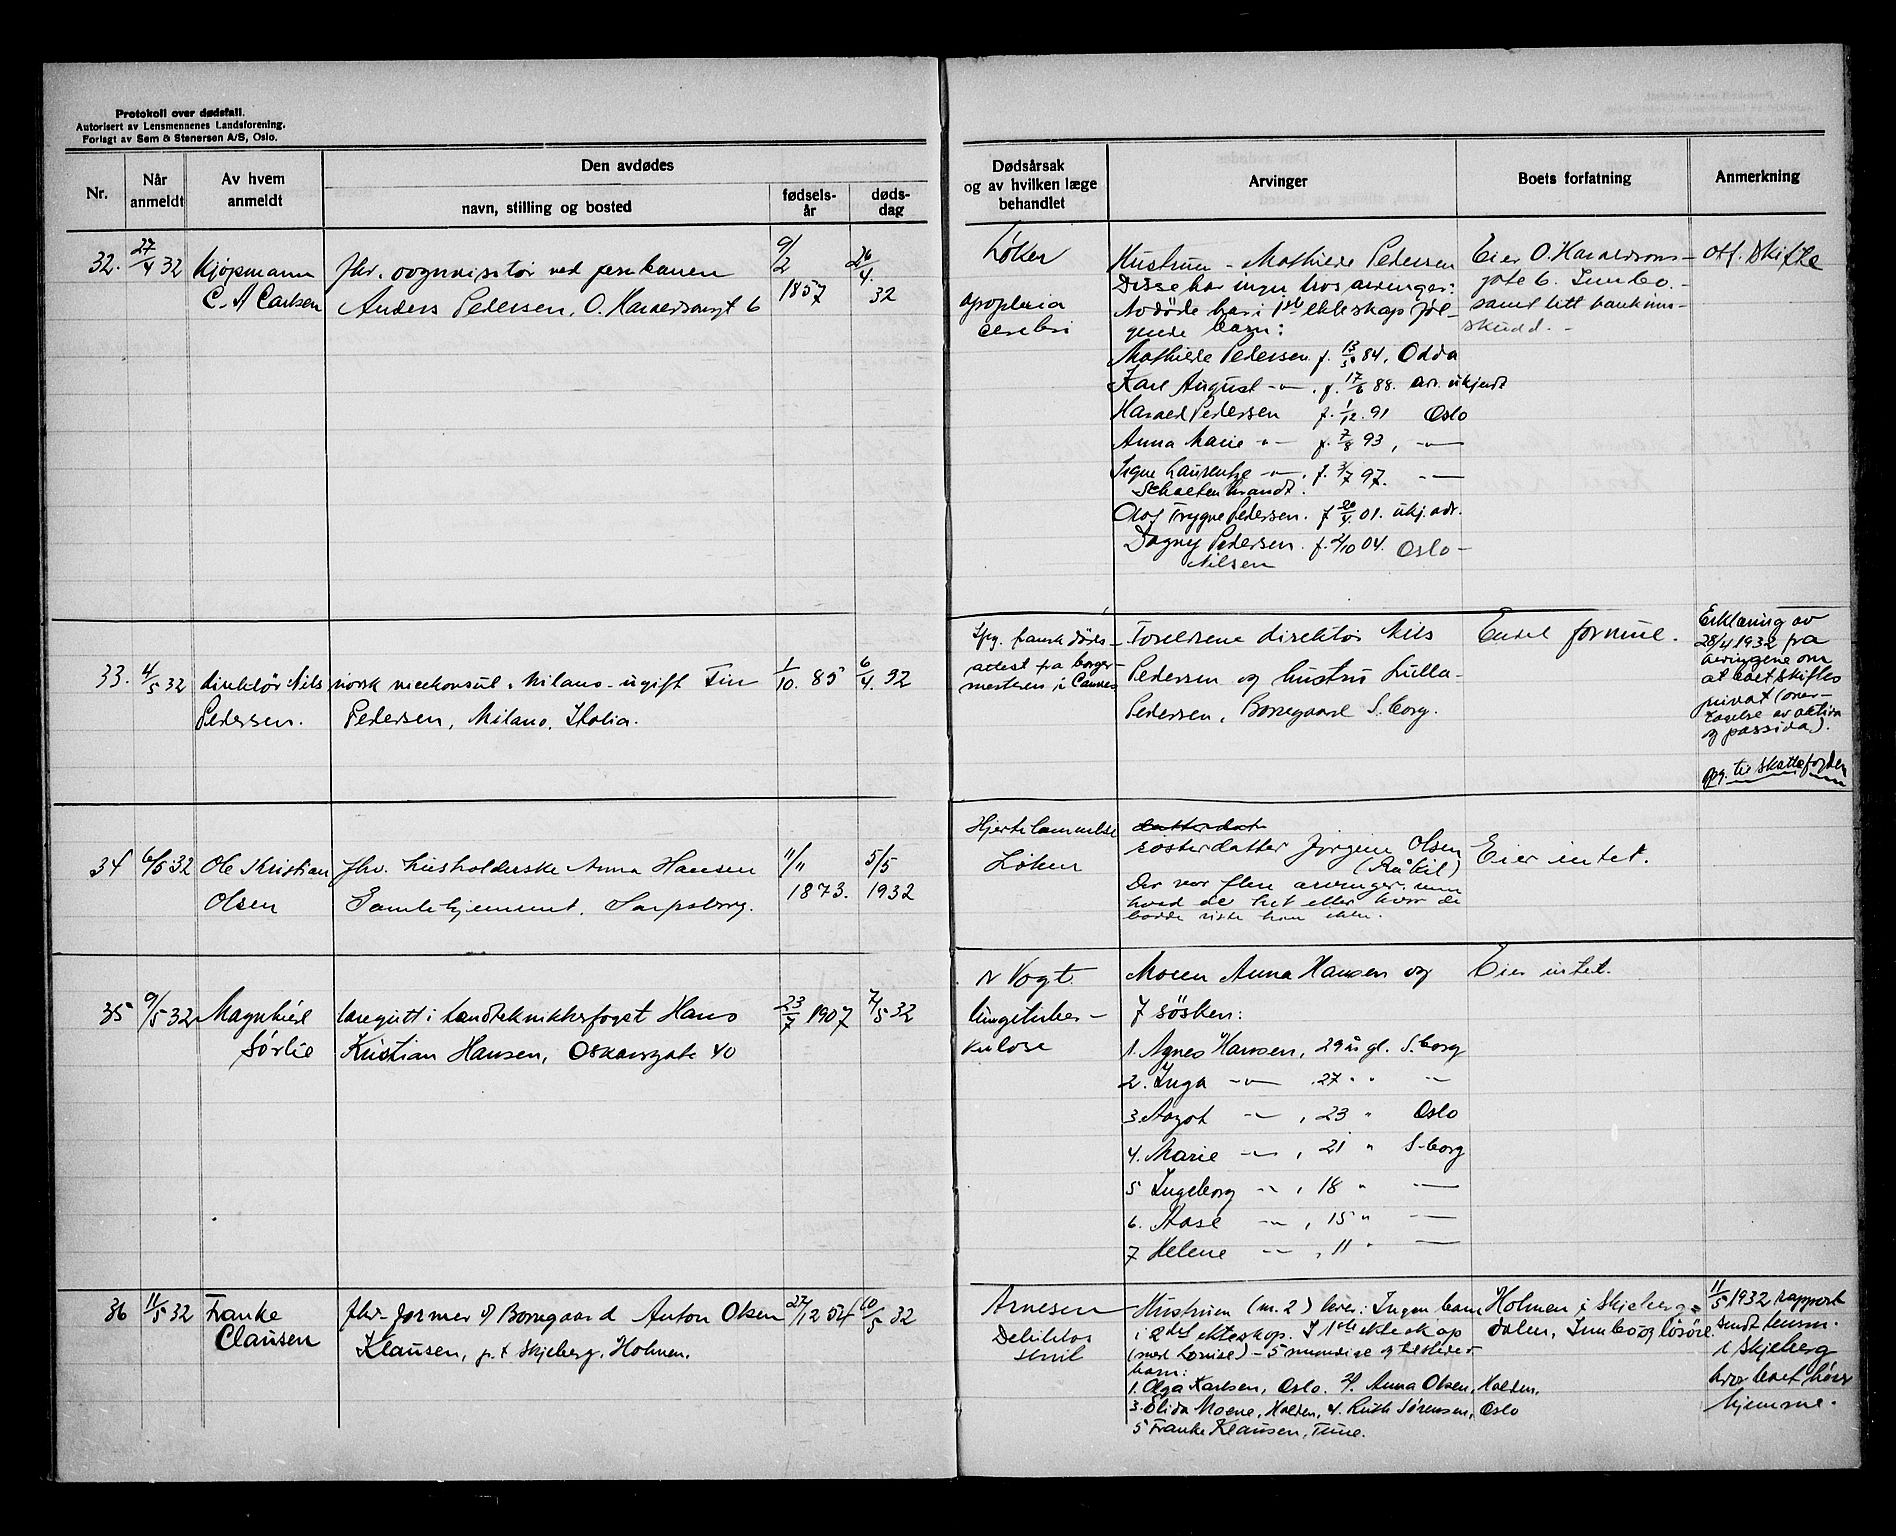 Protokoll over dødsfall.
Autorisert av Lensmennenes Landsforening.
Forlagt av Sem & Stenersen A/S, Oslo.
Nr.
Når
anmeldt
Av hvem
anmeldt
Den avdødes
navn, stilling og bosted
fødsels-
år
døds-
dag
Dødsårsak
og av hvilken læge
behandlet
Arvinger
Boets forfatning
Anmerkning
32. 27/4 32
Kjøpmann
C. A Carlsen
fhv. vognvisitør ved jernbanen
Anders Pedersen, O. Haraldsonsgt 6
9/2
1857
26/4.
32
Løken
apoplexia
cerebri
Hustrun - Mathilde Pedersen
Disse har ingen livsarvinger:
Avdøde har i 1ste ekteskap føl-
gende barn:
Mathilde Pedersen f. 84, Odda
Karl August -"- . f. 17/6 88. adr. ukjendt
Harald Pedersen f. 1/12. 91 Oslo
Anna Marie -"- f. 7/8 93, -"-
Signe Laurentze -"- . f. 3/7 97. -"-
Olaf Trygve Pedersen. f 20/4 01. ukj. adr.
Dagny Pedersen. f. 2/10 04. Oslo -
Nilsen
Eier O. Haraldsons-
gate 6. Innbo. -
samt litt bankinn-
skudd. -
Off. skifte
33. 4/5 32
direktør Nils
Pedersen.
norsk vicekonsul i Milano - ugift Finn
Pedersen, Milano, Italia.
1/10. 85
6/4. 32
fransk døds-
attest fra borger-
mesteren i Cannes
Foreldrene direktør Nils
Pedersen og hustru Lulla
Pedersen, Borregaard S.borg.
Endel formue.
Erklæring av
28/4 1932 fra
arvingene om
at boet skiftes
privat (over-
tagelse av aktiva
og passiva).
til skattefogden
34 6/5 32
Ole Kristian
Olsen
fhv. husholderske Anna Hansen
Gamlehjemmet, Sarpsborg.
"/"
1873.
5/5
1932
Hjertelammelse
Løken
søsterdatter Jørgine Olsen
Der var flere arvinger, men
hvad de het eller hvor de
bodde viste han ikke.
Eier intet.
35 9/5 32
Magnhild
Sørlie
Hans
Kristian Hansen, Oskarsgate 40
23/7 1907
7/5 32
N Vogt.
lungetuber-
kulose
Moren Anna Hansen og
7 søsken:
1. Agnes Hansen, 29 år gl. S.borg
2. Inga -"- . 27 " " -"-
3. Aagot -"- , 23 " Oslo
4. Marie -"- , 21 " S-borg
5 Ingeborg -"- , 18 " -"-
6. Aase -"- , 15 " -"-
7 Helene -"- , 11 " -"-
Eier intet.
36 11/5 32
Franke
Clausen
fhv. former v/ Borregaard Anton Olsen
Klausen, p.t. Skjeberg, Holmen.
27/12 54
10/5 32
Arnesen
Debilitas
senil
Hustrun (nr. 2) lever: Ingen barn
i 2det ekteskap. I 1ste ekteskap
(med Lovise) - 5 myndige og tilstede-
barn:
1. Olga Karlsen, Oslo. 2/. Anna Olsen, Halden,
3. Elida Moene, Halden, 4. Ruth Sørensen, Oslo
5 Franke Klausen, Tune.
Holmen i Skjeberg-
dalen, Innbo og løsøre.
11/5 1932 rapport
sendt lensm.
i Skjeberg
hvor boet hører
hjemme.